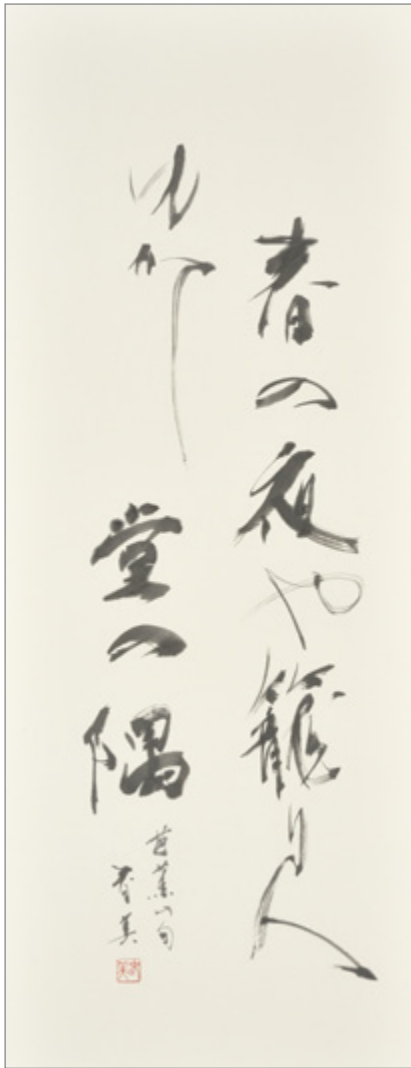 春の夜や籠り人
ゆかし堂の隅
芭蕉の句